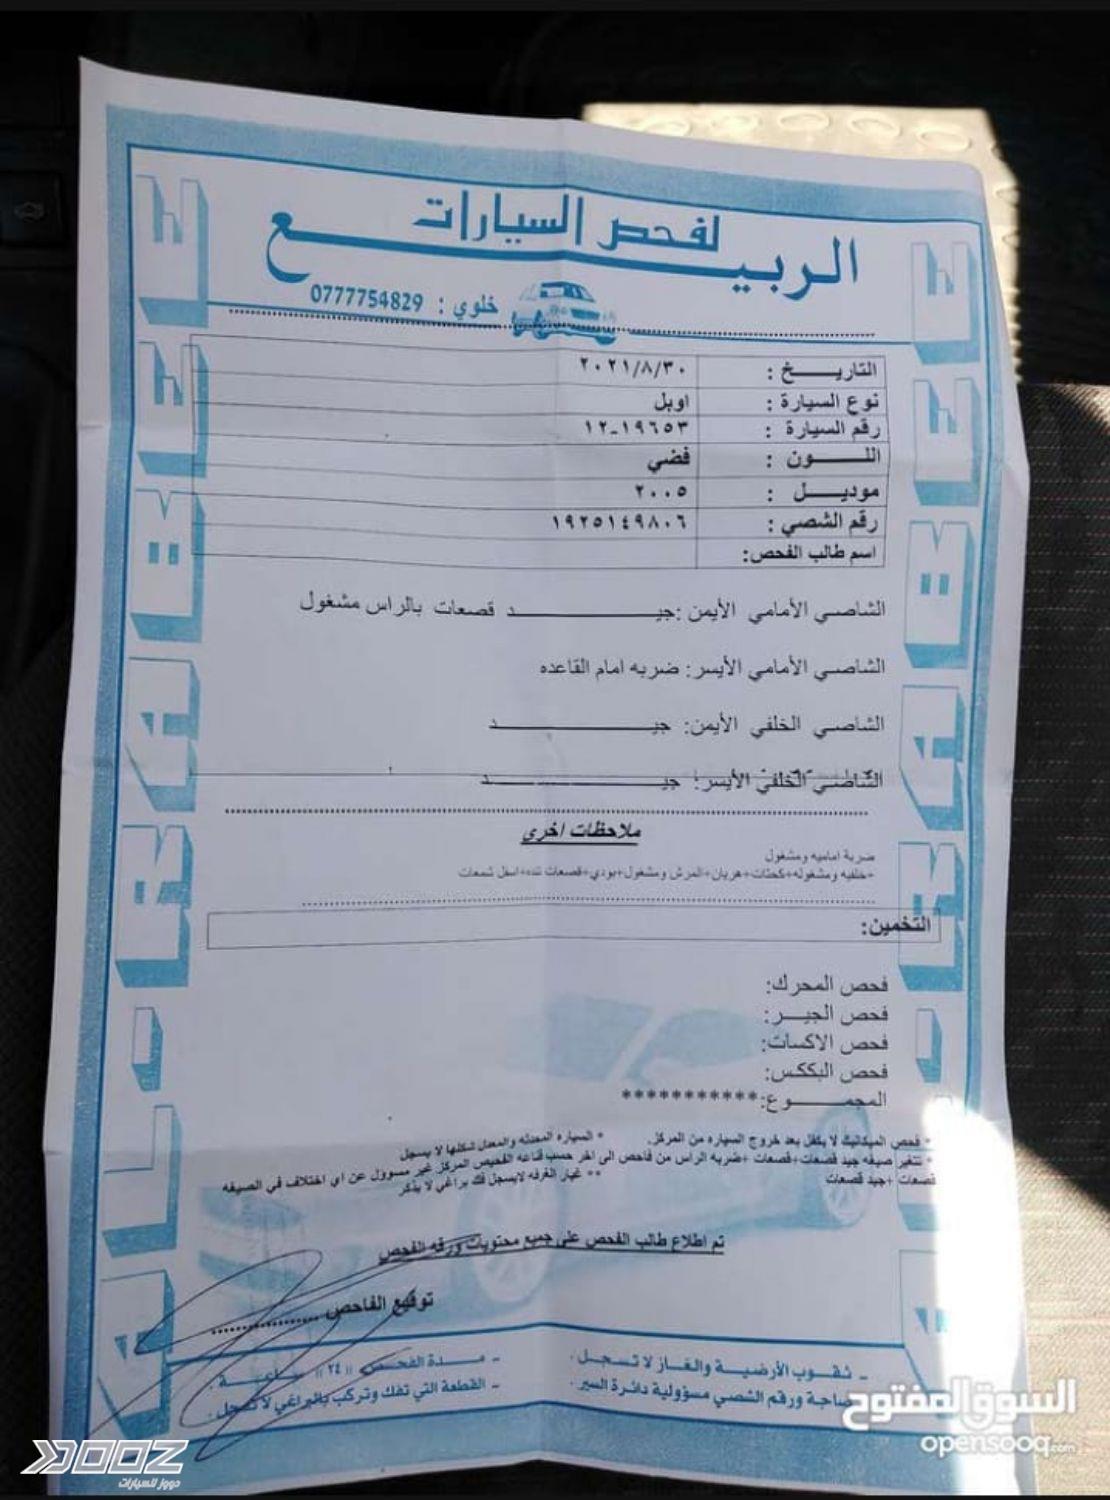 لفحص السيارات
الربيع
خلوي : 0777754829
التاريخ : ٢٠٢١/٨/٣٠
نوع السيارة : اوبل
رقم السيارة : ١٩٦٥٣-١٢
اللون : فضي
موديل : ٢٠٠٥
رقم الشصي : ١٩٢٥١٤٩٨٠٦
اسم طالب الفحص:
الشاصي الأمامي الأيمن :جيد قصعات بالراس مشغول
الشاصي الأمامي الأيسر: ضربه امام القاعده
الشاصي الخلفي الأيمن: جيد
الشاصي الخلفي الأيسر: جيد
ملاحظات اخرى
ضربة اماميه ومشغول
+خلفيه ومشغوله+كحتات+هريان+المرش ومشغول+بودي+قصعات تنده+اسفل شمعات
التخمين:
فحص المحرك:
فحص الجير:
فحص الاكسات:
فحص البككس:
المجموع:***********
* فحص الميكانيك لا يكفل بعد خروج السياره من المركز. * السياره المعدله والمعدل شكلها لا يسجل
* تتغير صيغه جيد قصعات+قصعات +ضربه الراس من فاحص الى اخر حسب قناعه الفحيص المركز غير مسوؤل عن اي اختلاف في الصيغه
قصعات +جيد قصعات ** غيار الغرفه لايسجل فك براغي لا يذكر
تم اطلاع طالب الفحص على جميع محتويات ورقه الفحص
توقيع الفاحص
ـ ثقوب الأرضية والغاز لا تسجل . ـ مدة الفحص (( ٢٤ )) ساعية .
صاجة ورقم الشصي مسؤولية دائرة السير . ـ القطعة التي تفك وتركب بالبراغي لا تسجل .
AL-RABEE
AL-RABEE
السوق المفتوح
opensooq.com
DOOZ
دووز للسيارات